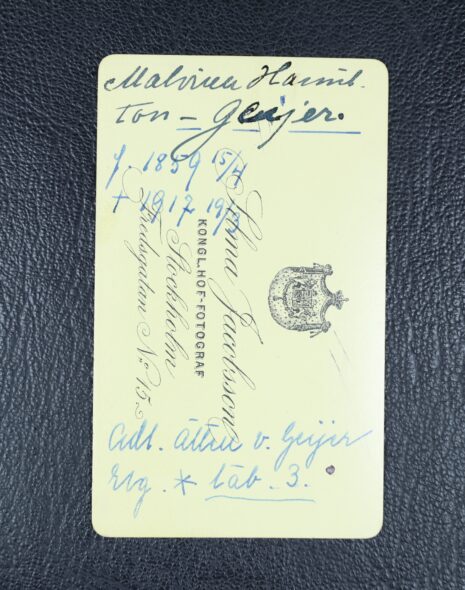 Malvina Hamil-
ton - Geijer.
f. 1859 15/4
+ 1917 19/3
Selma Jacobsson
KONGL. HOF-FOTOGRAF
Stockholm
Fredsgatan No. 15.
Adl. ätten v. Geijer
* tab. 3.